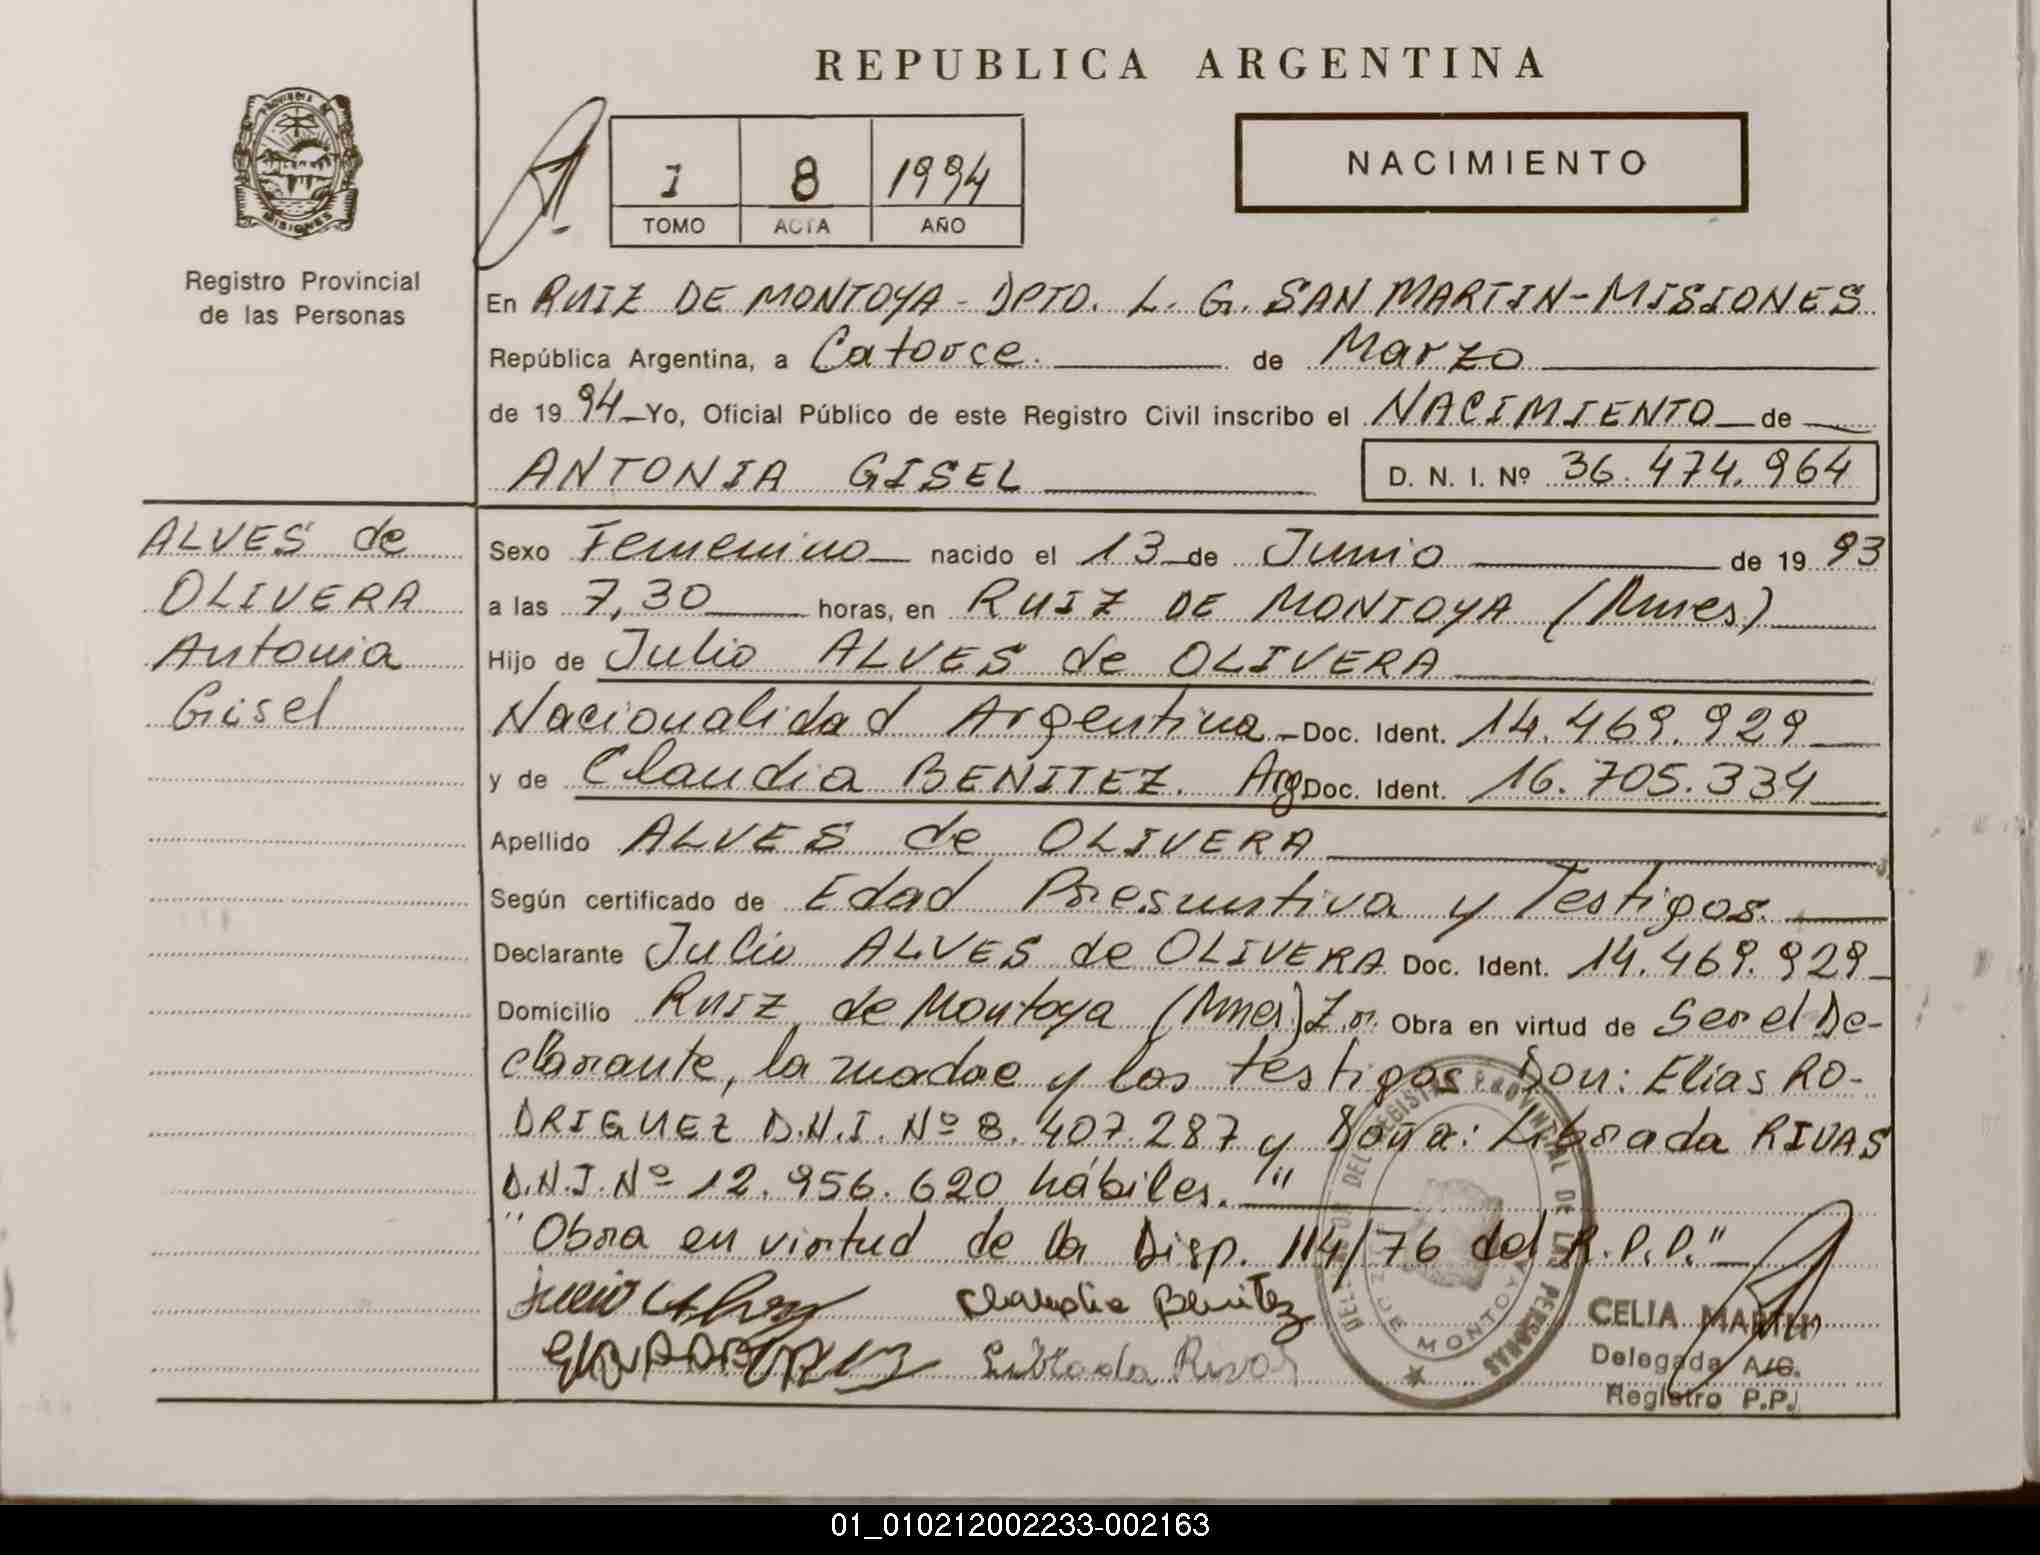 REPUBLICA ARGENTINA
PROVINCIA DE
MISIONES
Registro Provincial
de las Personas
1 8 1994
TOMO ACTA AÑO
NACIMIENTO
En RUIZ DE MONTOYA - DPTO. L. G. SAN MARTIN - MISIONES
República Argentina, a Catorce. de Marzo
de 1994 Yo, Oficial Público de este Registro Civil inscribo el NACIMIENTO de
ANTONIA GISEL D. N. I. Nº 36.474.964
ALVES de
OLIVERA
Antonia
Gisel
Sexo Femenino nacido el 13 de Junio de 1993
a las 7,30 horas, en RUIZ DE MONTOYA (Mnes)
Hijo de Julio ALVES de OLIVERA
Nacionalidad Argentina Doc. Ident. 14.469.929
y de Claudia BENITEZ. Arg Doc. Ident. 16.705.334
Apellido ALVES de OLIVERA
Según certificado de Edad Presuntiva y Testigos.
Declarante Julio ALVES de OLIVERA Doc. Ident. 14.469.929
Domicilio RUIZ de Montoya (Mnes) Obra en virtud de Ser el De-
clarante, la madre y los testigos Don: Elias RO-
DRIGUEZ D.N.I. Nº 8.407.287 y Doña: Librada RIVAS
D.N.I. Nº 12.956.620 hábiles. "
"Obra en virtud de la Disp. 114/76 del R.P.P."
Claudia Benitez
Librada Rivas
DEL REGISTRO PROVINCIAL DE LAS PERSONAS
DE MONTOYA
CELIA MARTIN
Delegada A/C.
Registro P.P.
01_010212002233-002163